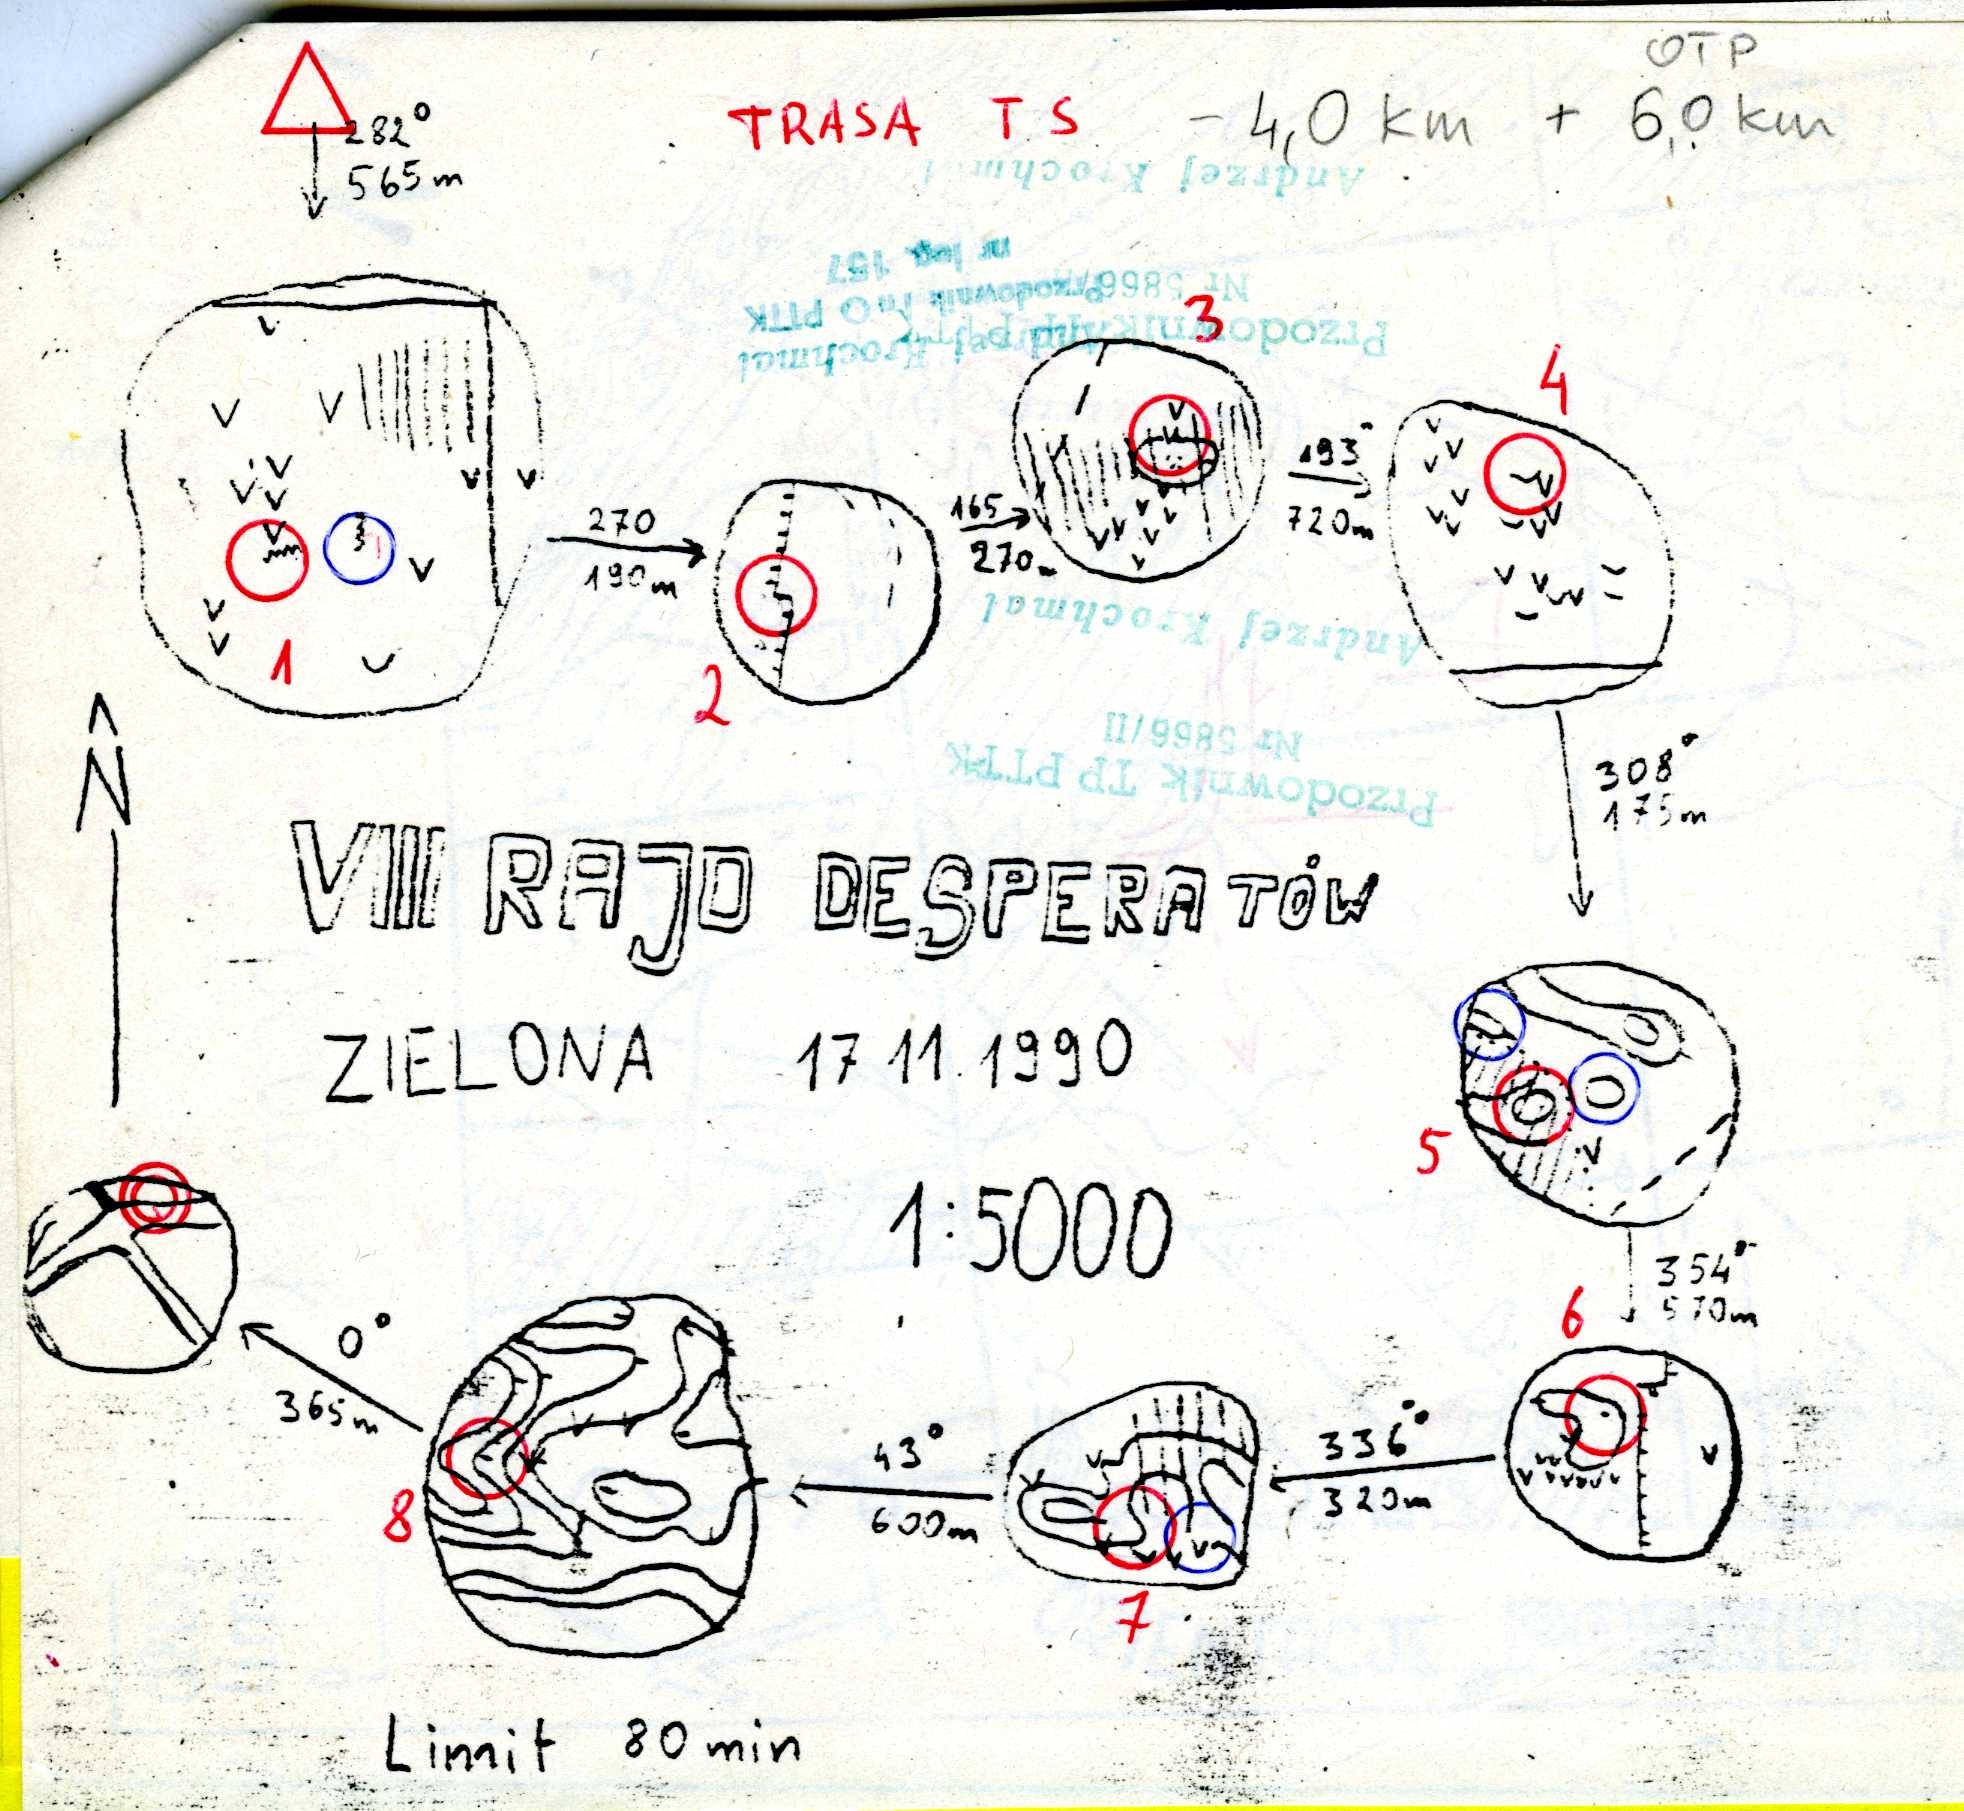 OTP
TRASA TS - 4,0 km + 6,0 km
282°
565m
Andrzej Krochmal
nr leg. 157
Przodownik InO PTTK
Andrzej Krochmal
Nr 5866/II
Przodownik TP PTTK
3
4
193°
720m
270
190m
165
270m
1
2
Andrzej Krochmal
Nr 5866/II
Przodownik TP PTTK
N
308°
175m
VIII RAJD DESPERATÓW
ZIELONA 17 11.1990
5
1:5000
354°
570m
6
0°
365m
43°
600m
336°
320m
8
7
Limit 80 min